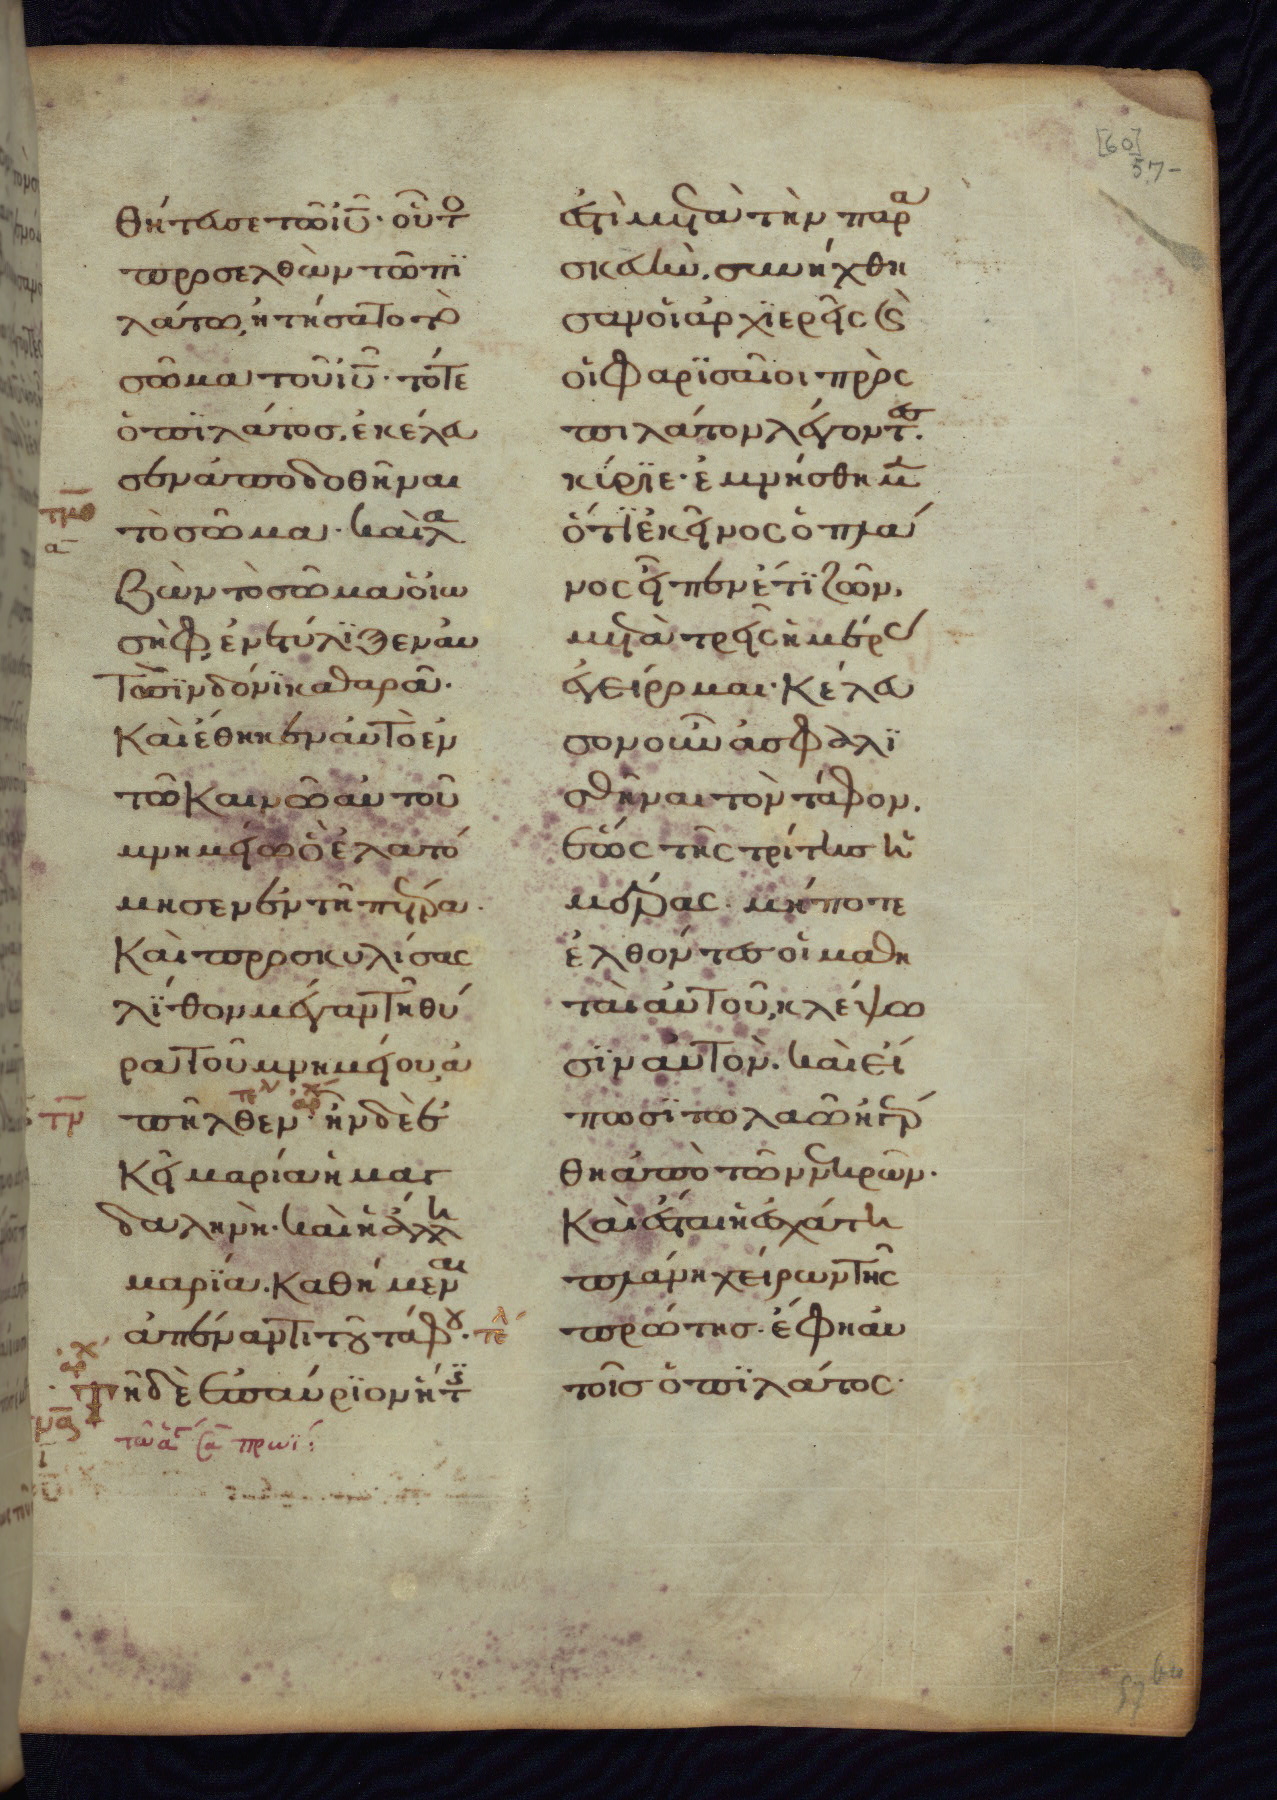 [60]
57-
θήτευσε τῶ ἰῦ· οὗτο
προσελθὼν τῶ πϊ
λάτω, ἠτήσατο τὸ
σῶμα τοῦ ἰῦ· τότε
ὁ πϊλάτος, ἐκέλευ
σεν ἀποδοθῆναι
τμθ
α
τὸ σῶμα· καὶ λα
βὼν τὸ σῶμα ὁ ἰω
σὴφ, ἐνετύλϊξεν αυ
τὸ σϊνδόνϊ καθαρᾶ·
Καὶ ἔθηκεν αὐτὸ ἐν
τῶ καινῶ αὐτοῦ
μνημείω ὃ ἐλατό
μησεν ἐν τῆ πέτρα·
Καὶ προσκυλίσας
λΐθον μέγαν τῆ θύ
ρα τοῦ μνημείου, ἀ
τν
πῆλθεν· ἦν δὲ ἐ
κεῖ μαρία ἡ μαγ
δαληνὴ· καὶ ἡ ἄλλη
μαρΐα· καθήμεναι
ἀπέναντι τοῦ τάφου· τελ
τῆ δὲ ἐπαύρϊον ἥτϊσ
τῶ ἁγ σα πρωΐ:
ἐστὶ μετὰ τὴν παρα
σκευὴ, συνήχθη
σαν οἱ ἀρχϊερεῖς καὶ
οἱ φαρϊσαῖοι πρὸς
πιλάτον λέγοντες·
κύρϊε· ἐμνήσθημεν
ὅτϊ ἐκεῖνος ὁ πλά
νος εἶπεν ἔτϊ ζῶν,
μετὰ τρεῖς ἡμέρας
ἐγείρομαι· Κέλευ
σον οὖν ἀσφαλϊ
σθῆναι τὸν τάφον,
ἕως τῆς τρίτης ἡ
μέρας· μήποτε
ἐλθόντες οἱ μαθη
ταὶ αὐτοῦ, κλέψω
σϊν αὐτὸν· καὶ εἴ
πωσϊ τῶ λαῶ ἠγέρ
θη ἀπὸ τῶν νεκρῶν·
Καὶ ἔσται ἡ ἐσχάτη
πλάνη χείρων τῆς
πρώτης· ἔφη αὐ
τοῖς ὁ πϊλάτος·
57